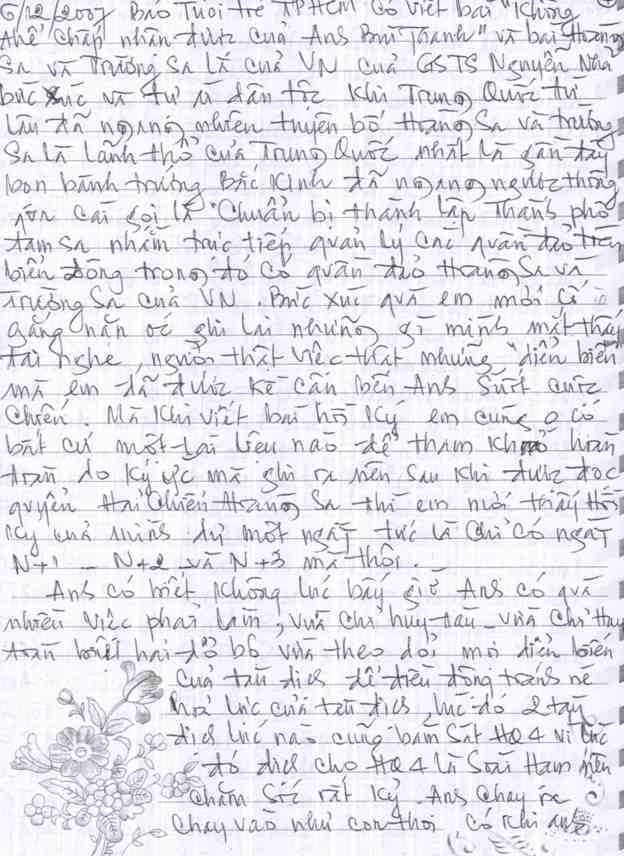 6/12/2007 Báo Tuổi trẻ TPHCM Có viết bài "Không
thể chấp nhận được của Anh Bùi Thanh" và bài Hoàng
Sa và Trường Sa là của VN của GSTS Nguyễn Nhã
bức xúc và tự ái dân tộc Khi Trung Quốc từ
lâu đã ngang nhiên tuyên bố Hoàng Sa và Trường
Sa là lãnh thổ của Trung Quốc nhất là gần đây
bọn bành trướng Bắc Kinh đã ngang ngược thông
qua cái gọi là "Chuẩn bị thành lập Thành phố
tam Sa nhằm trực tiếp quản lý các quần đảo trên
biển đông trong đó có quần đảo Hoàng Sa và
Trường Sa của VN. Bức xúc quá em mới cố
gắng nặn óc ghi lại những gì mình mắt thấy
tai nghe, người thật việc thật những "diễn biến
mà em đã được kề cận bên Anh Suốt cuộc
Chiến. Mà Khi viết bài hồi Ký em cũng o có
bất cứ một tài liệu nào để tham khảo hoàn
toàn do Ký ức mà ghi ra nên Sau Khi được đọc
quyển Hải Chiến Hoàng Sa thì em mới thấy Hồi
Ký của mình dư một ngày tức là Chỉ có ngày
N+1 - N+2 và N+3 mà thôi.
Anh có biết Không lúc bấy giờ Anh có quá
nhiều việc phải làm, vừa Chỉ huy tàu - vừa Chỉ Huy
toán biệt hải đổ bộ vừa theo dõi mọi diễn biến
của tàu địch để điều động tránh né
hoả lực của tàu địch, lúc đó 2 tàu
địch lúc nào cũng bám Sát HQ4 vì lúc
đó địch cho HQ4 là Soái Hạm nên
Chăm Sóc rất Kỷ. Anh Chạy ra
Chạy vào như con thoi có Khi anh